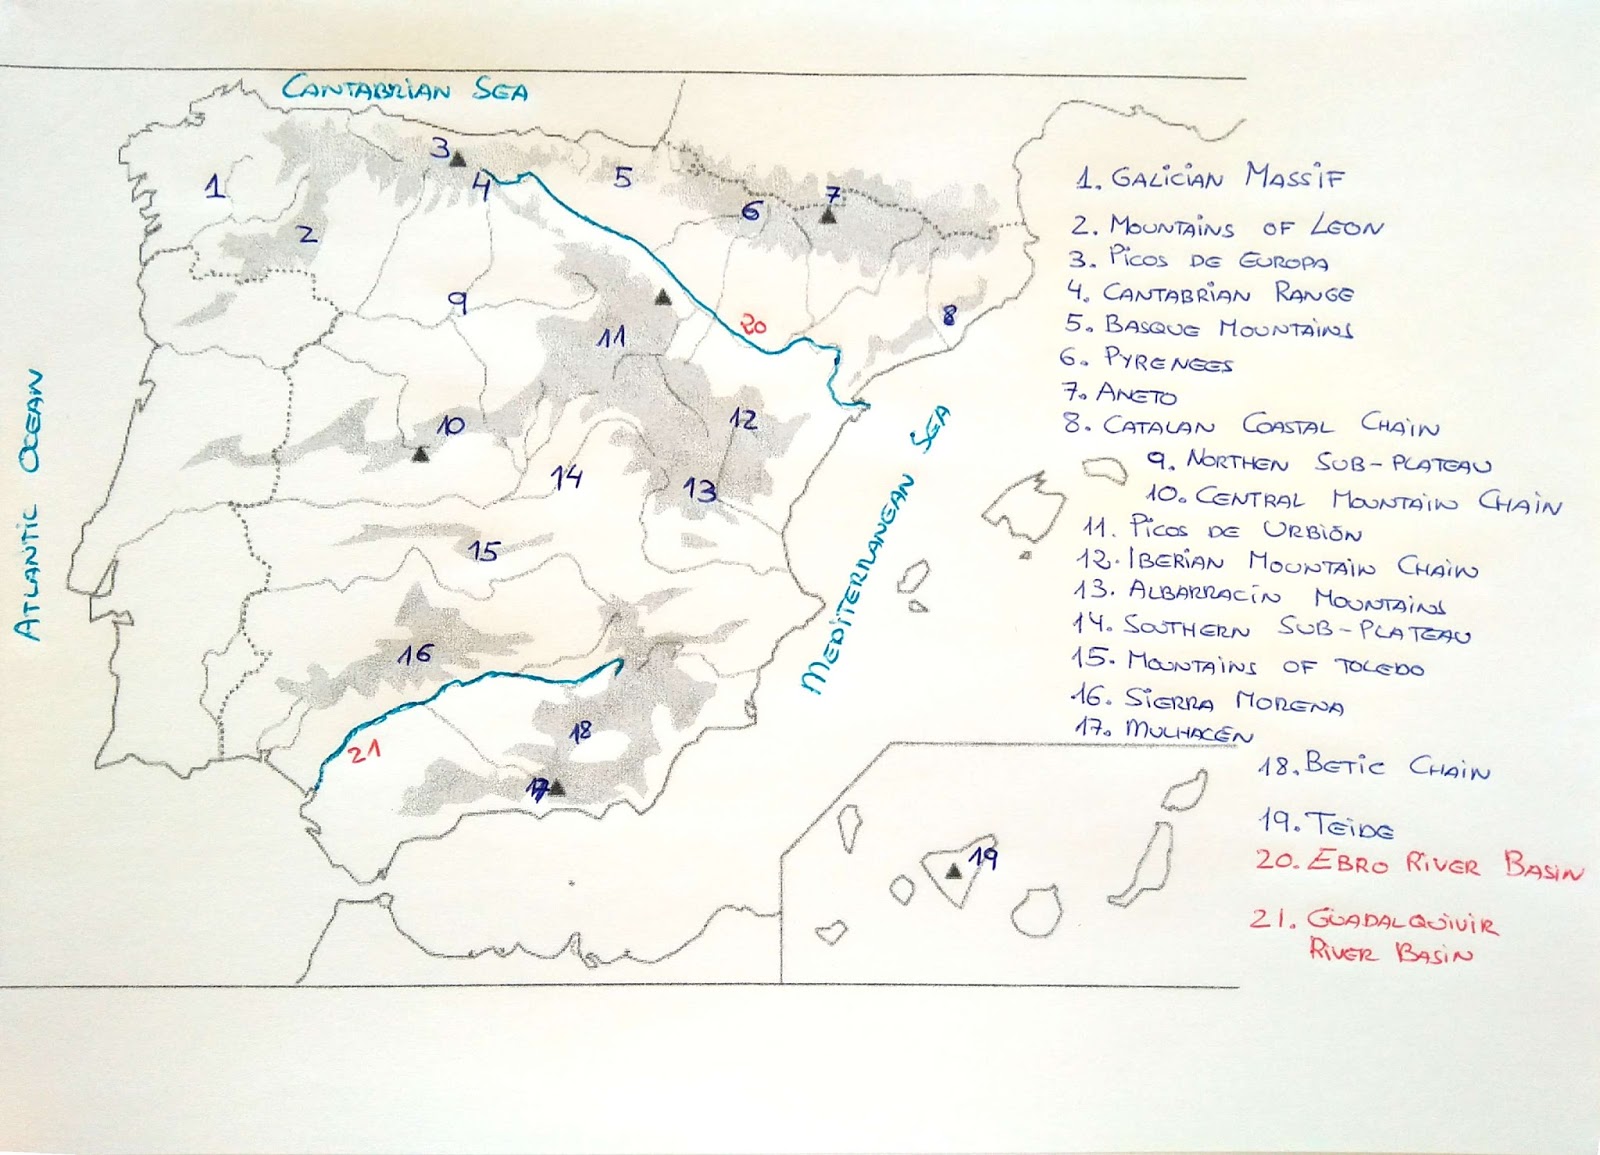 CANTABRIAN SEA
ATLANTIC OCEAN
MEDITERRANEAN SEA
1
2
3
4
5
6
7
8
9
10
11
12
13
14
15
16
17
18
19
20
21
1. GALICIAN MASSIF
2. MOUNTAINS OF LEON
3. PICOS DE EUROPA
4. CANTABRIAN RANGE
5. BASQUE MOUNTAINS
6. PYRENEES
7. ANETO
8. CATALAN COASTAL CHAIN
9. NORTHEN SUB-PLATEAU
10. CENTRAL MOUNTAIN CHAIN
11. PICOS DE URBIÓN
12. IBERIAN MOUNTAIN CHAIN
13. ALBARRACÍN MOUNTAINS
14. SOUTHERN SUB-PLATEAU
15. MOUNTAINS OF TOLEDO
16. SIERRA MORENA
17. MULHACÉN
18. BETIC CHAIN
19. TEIDE
20. EBRO RIVER BASIN
21. GUADALQUIVIR
RIVER BASIN